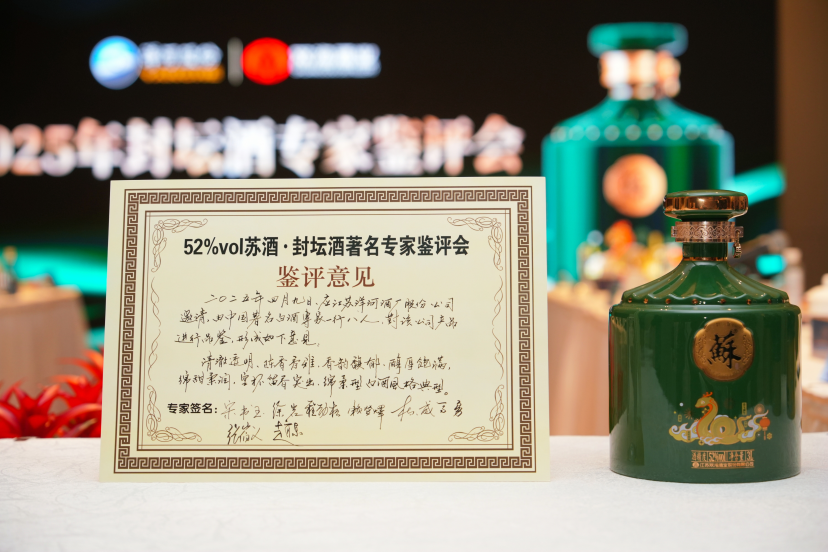 025年封坛酒专家鉴评会
52%vol苏酒·封坛酒著名专家鉴评会
鉴评意见
二〇二五年四月九日,在江苏洋河酒厂股份公司
邀请,由中国著名白酒专家一行八人,对该公司产品
进行品鉴,形成如下意见。
清澈透明,陈香秀雅,香韵馥郁,醇厚饱满,
绵甜柔润,空杯留香突出,绵柔型白酒风格典型。
专家签名:
蘇